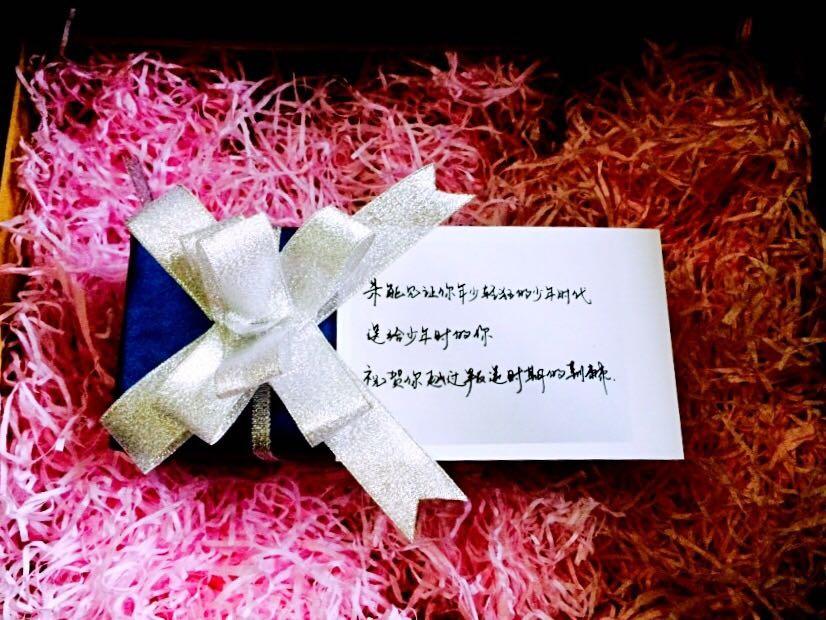 能让你年少轻狂的少年时代
送给少年时的你
祝贺你越过叛逆时期的荆棘.